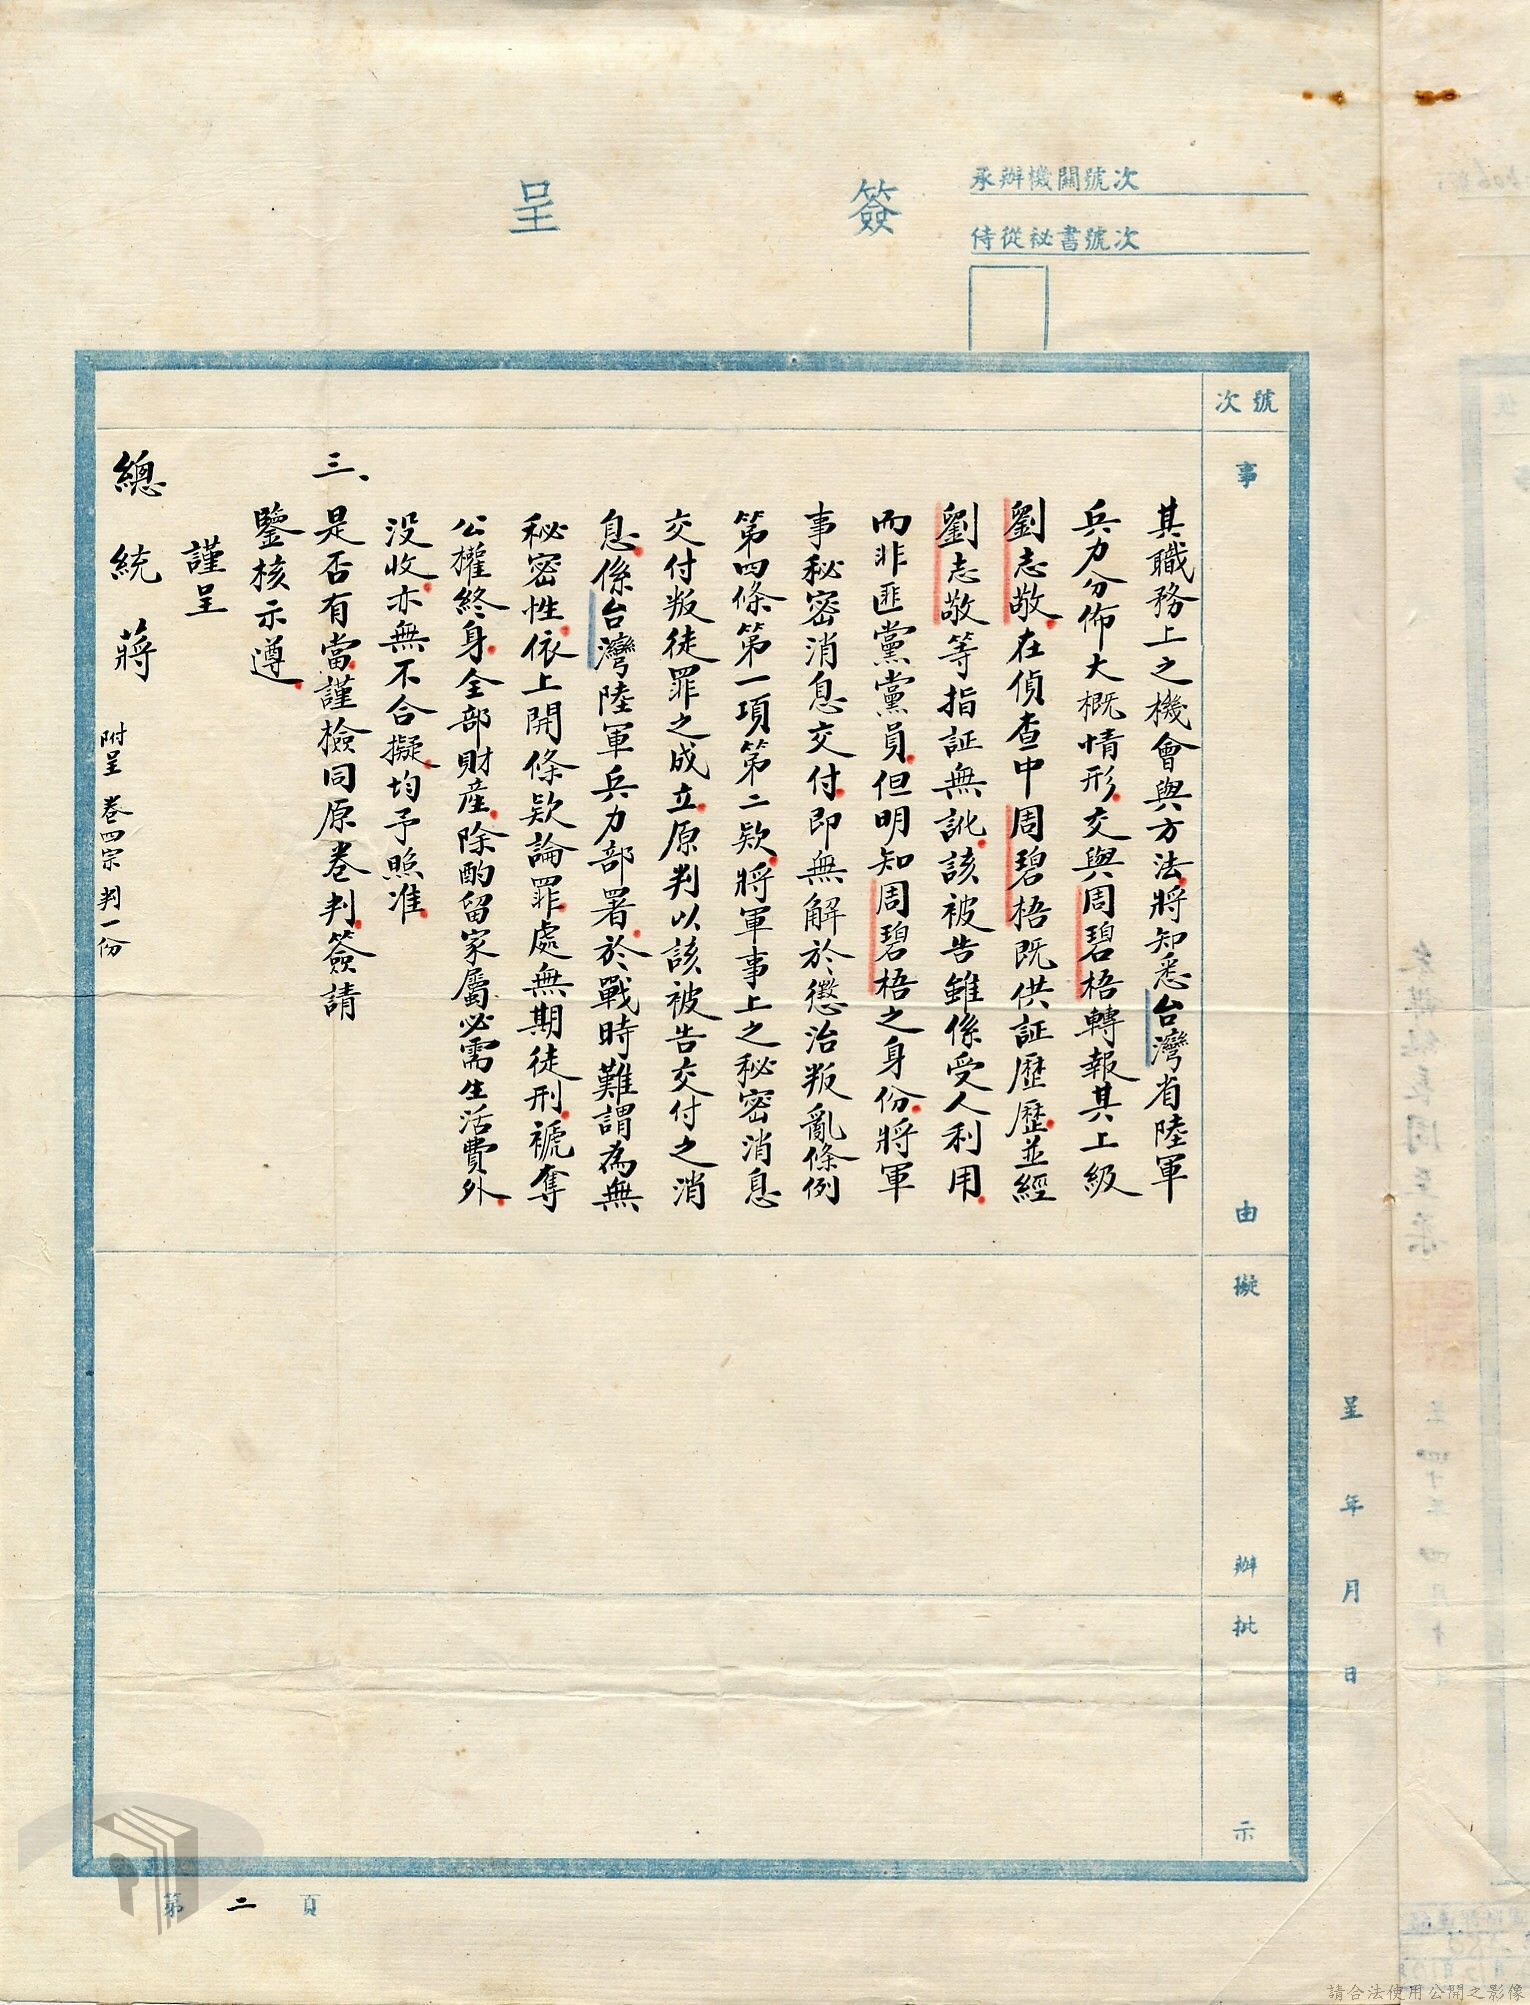 簽呈
承辦機關號次
侍從祕書號次
號次
事由
擬辦
批示
其職務上之機會與方法將知悉台灣省陸軍
兵力分佈大概情形交與周碧梧轉報其上級
劉志敬在偵查中周碧梧既供証歷歷並經
劉志敬等指証無訛該被告雖係受人利用
而非匪黨黨員但明知周碧梧之身份將軍
事秘密消息交付即無解於懲治叛亂條例
第四條第一項第二欵將軍事上之秘密消息
交付叛徒罪之成立原判以該被告交付之消
息係台灣陸軍兵力部署於戰時難謂為無
秘密性依上開條欵論罪處無期徒刑褫奪
公權終身全部財產除酌留家屬必需生活費外
没收亦無不合擬均予照准
三、是否有當謹檢同原卷判簽請
鑒核示遵
謹呈
總統蔣
附呈卷四宗判一份
呈 年 月 日
第二頁
請合法使用公開之影像